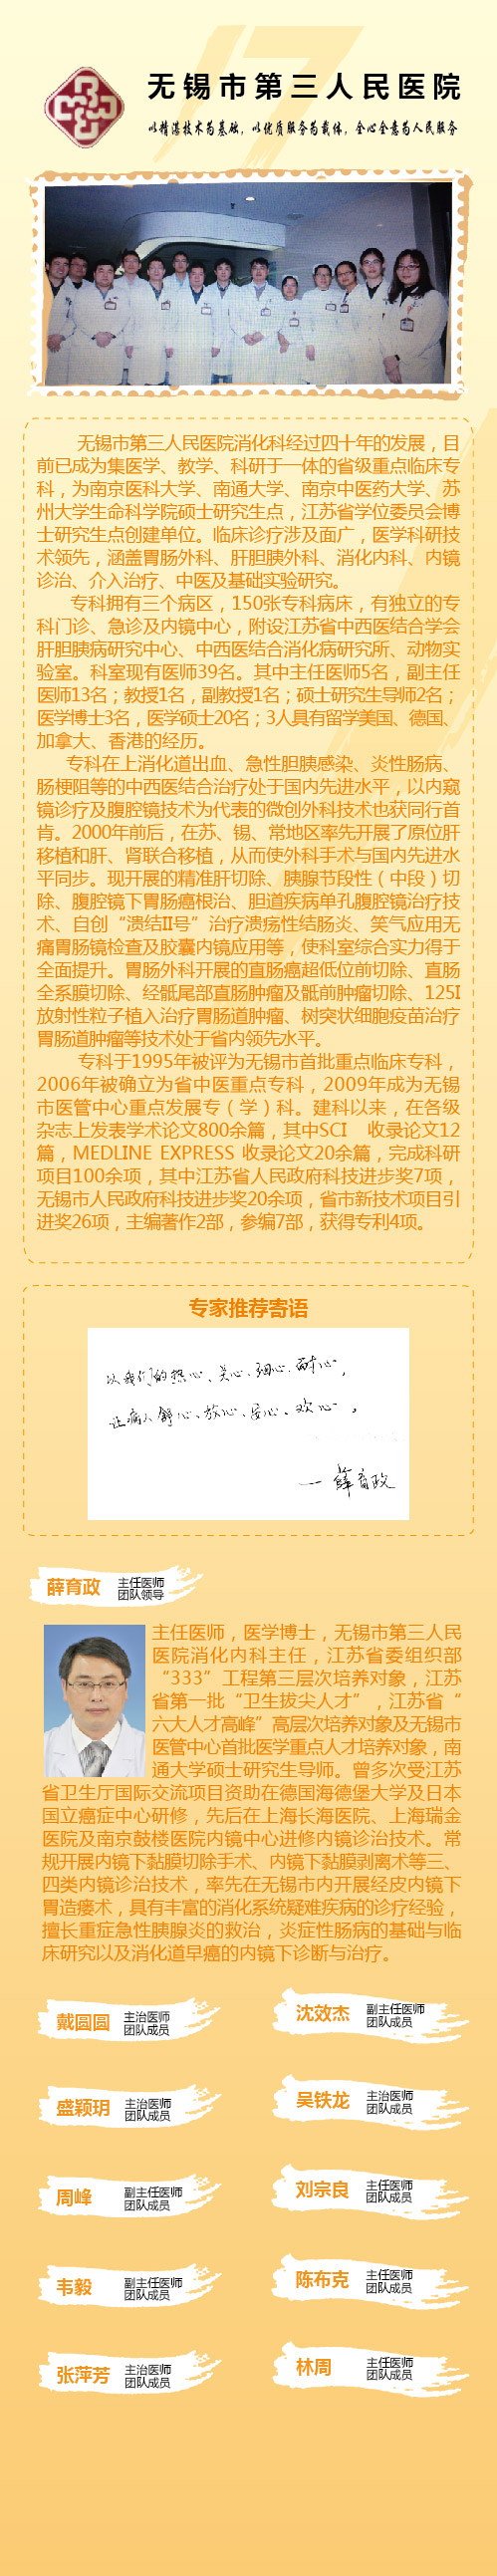 17
无锡市第三人民医院
以精湛技术为基础，以优质服务为载体，全心全意为人民服务
无锡市第三人民医院消化科经过四十年的发展，目
前已成为集医学、教学、科研于一体的省级重点临床专
科，为南京医科大学、南通大学、南京中医药大学、苏
州大学生命科学院硕士研究生点，江苏省学位委员会博
士研究生点创建单位。临床诊疗涉及面广，医学科研技
术领先，涵盖胃肠外科、肝胆胰外科、消化内科、内镜
诊治、介入治疗、中医及基础实验研究。
专科拥有三个病区，150张专科病床，有独立的专
科门诊、急诊及内镜中心，附设江苏省中西医结合学会
肝胆胰病研究中心、中西医结合消化病研究所、动物实
验室。科室现有医师39名。其中主任医师5名，副主任
医师13名；教授1名，副教授1名；硕士研究生导师2名；
医学博士3名，医学硕士20名；3人具有留学美国、德国、
加拿大、香港的经历。
专科在上消化道出血、急性胆胰感染、炎性肠病、
肠梗阻等的中西医结合治疗处于国内先进水平，以内窥
镜诊疗及腹腔镜技术为代表的微创外科技术也获同行首
肯。2000年前后，在苏、锡、常地区率先开展了原位肝
移植和肝、肾联合移植，从而使外科手术与国内先进水
平同步。现开展的精准肝切除、胰腺节段性（中段）切
除、腹腔镜下胃肠癌根治、胆道疾病单孔腹腔镜治疗技
术、自创“溃结II号”治疗溃疡性结肠炎、笑气应用无
痛胃肠镜检查及胶囊内镜应用等，使科室综合实力得于
全面提升。胃肠外科开展的直肠癌超低位前切除、直肠
全系膜切除、经骶尾部直肠肿瘤及骶前肿瘤切除、125I
放射性粒子植入治疗胃肠道肿瘤、树突状细胞疫苗治疗
胃肠道肿瘤等技术处于省内领先水平。
专科于1995年被评为无锡市首批重点临床专科，
2006年被确立为省中医重点专科，2009年成为无锡
市医管中心重点发展专（学）科。建科以来，在各级
杂志上发表学术论文800余篇，其中SCI 收录论文12
篇，MEDLINE EXPRESS 收录论文20余篇，完成科研
项目100余项，其中江苏省人民政府科技进步奖7项，
无锡市人民政府科技进步奖20余项，省市新技术项目引
进奖26项，主编著作2部，参编7部，获得专利4项。
专家推荐寄语
以我们的热心、关心、细心、耐心，
让病人舒心、放心、安心、欢心。
—薛育政
薛育政 主任医师
团队领导
主任医师，医学博士，无锡市第三人民
医院消化内科主任，江苏省委组织部
“333”工程第三层次培养对象，江苏
省第一批“卫生拔尖人才”，江苏省“
六大人才高峰”高层次培养对象及无锡市
医管中心首批医学重点人才培养对象，南
通大学硕士研究生导师。曾多次受江苏
省卫生厅国际交流项目资助在德国海德堡大学及日本
国立癌症中心研修，先后在上海长海医院、上海瑞金
医院及南京鼓楼医院内镜中心进修内镜诊治技术。常
规开展内镜下黏膜切除手术、内镜下黏膜剥离术等三、
四类内镜诊治技术，率先在无锡市内开展经皮内镜下
胃造瘘术，具有丰富的消化系统疑难疾病的诊疗经验，
擅长重症急性胰腺炎的救治，炎症性肠病的基础与临
床研究以及消化道早癌的内镜下诊断与治疗。
戴圆圆 主治医师
团队成员
沈效杰 副主任医师
团队成员
盛颖玥 主治医师
团队成员
吴铁龙 主治医师
团队成员
周峰 副主任医师
团队成员
刘宗良 主任医师
团队成员
韦毅 副主任医师
团队成员
陈布克 主任医师
团队成员
张萍芳 主治医师
团队成员
林周 主任医师
团队成员